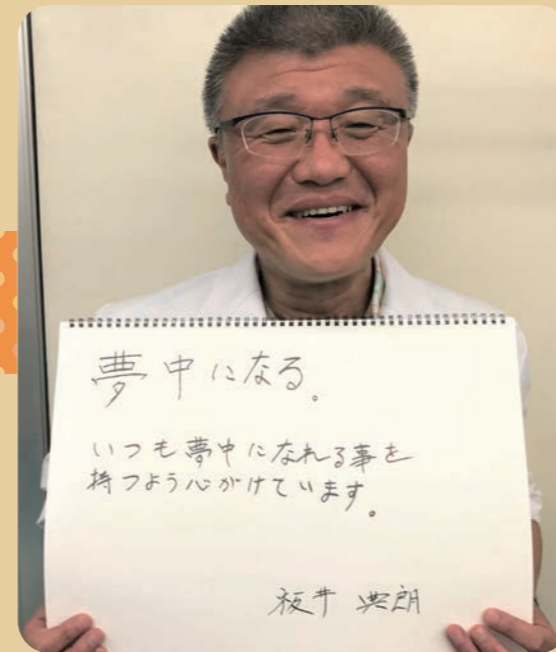 夢中になる。
いつも夢中になれる事を
持つよう心がけています。
板井 典朗